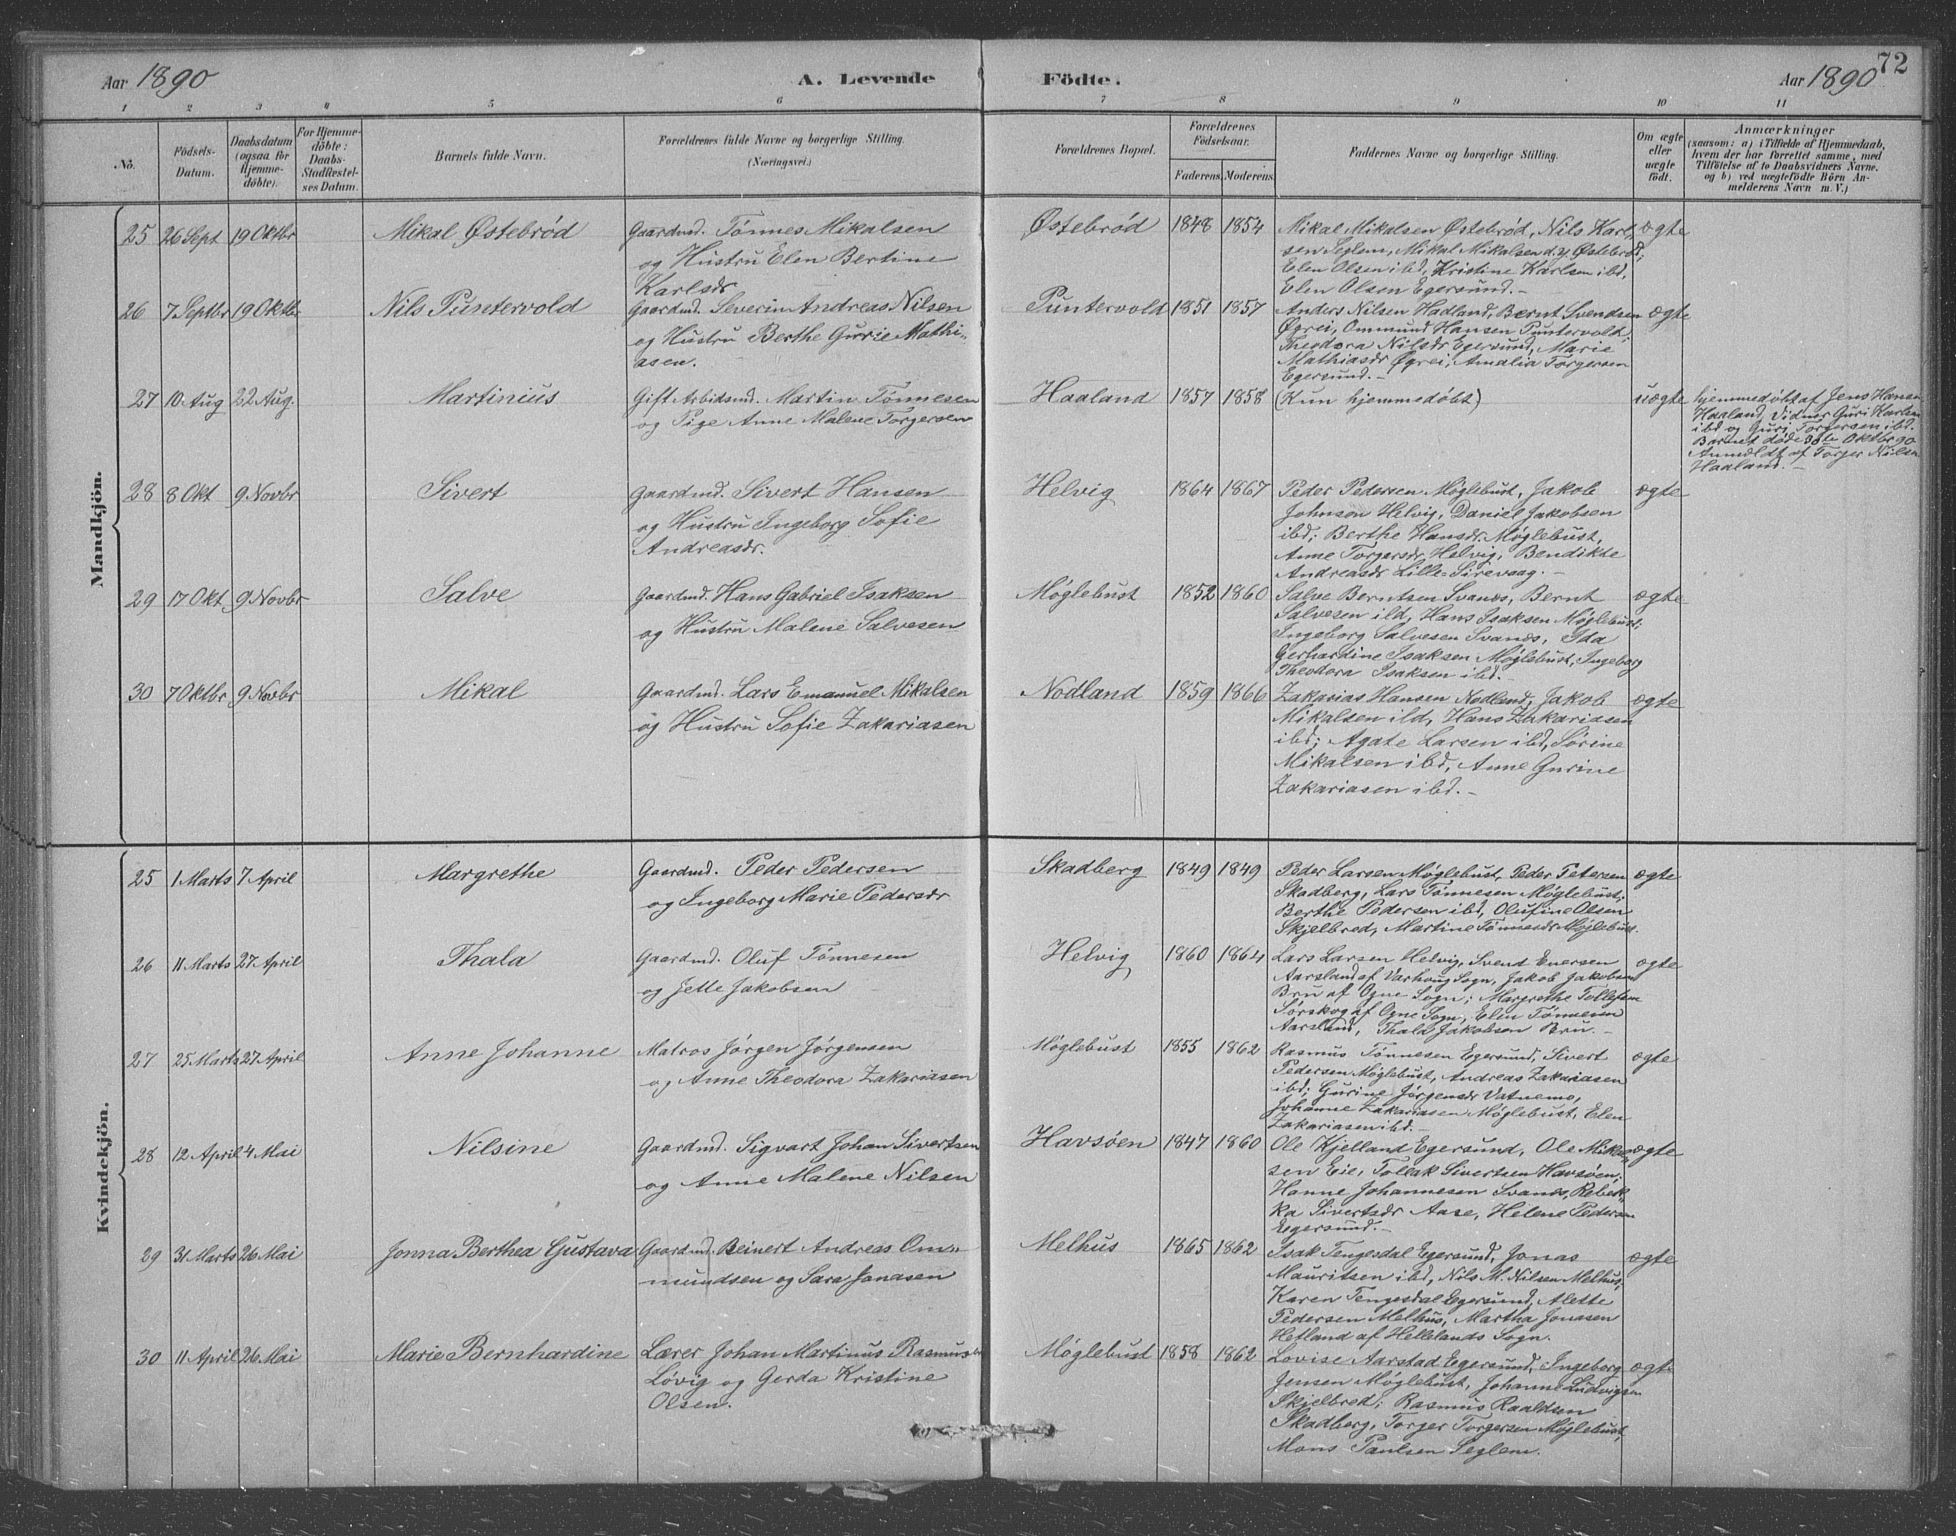 72
Aar 1890 A. Levende Födte. Aar 1890
1 2 3 4 5 6 7 8 9 10 11
No. Födsels-Datum. Daabsdatum (ogsaa for Hjemme-döbte). For Hjemme-döbte: Daabs-Stadfæstel-ses Datum. Barnets fulde Navn. Forældrenes fulde Navne og borgerlige Stilling. (Næringsvei.) Forældrenes Bopæl. Forældrenes Födselsaar. Faderens. Moderens. Faddernes Navne og borgerlige Stilling. Om ægte eller uægte födt. Anmærkninger (saasom: a) i Tilfælde af Hjemmedaab, hvem der har forrettet samme, med Tilföielse af to Daabsvidners Navne, og b) ved uægtefödte Börn An-melderens Navn m. V.)
Mandkjön.
25 26 Sept 19 Oktbr Mikal Østebrød Gaardmd. Tønnes Mikalsen
og Hustru Elen Bertine
Karlsdr
Østebrød 1848 1854 Mikal Mikalsen Østebrød, Nils Karl-
sen Seglem, Mikal Mikalsen d.y. Østebrød;
Elen Olsen ibd, Kristine Karlsen ibd,
Elen Olsen Egersund.-
ægte
26 7 Septbr 19 Oktbr Nils Puntervold Gaardmd. Severin Andreas Nilsen
og Hustru Berthe Gurie Mathi-
asen.
Puntervold 1851 1857 Anders Nilsen Hadland, Bernt Svendsen
Øgrei, Ommund Hansen Puntervold;
Theodora Nilsdr Egersund, Marie
Mathiasdr Øgrei, Amalia Torgersen
Egersund.-
ægte
27 10 Aug 22 Aug. Martinius Gift Arbidsmd. Martin Tønnesen
og Pige Anne Malene Torgersen
Haaland 1857 1858 (Kun hjemmedøbt) uægte
hjemmedøbt af Jens Hansen
Haaland, Vidner Guri Karlsen
ibd og Guri Torgersen ibd.
Barnet døde 30te Oktbr 90
Anmeldt af Torger Nilsen
Haaland.-
28 8 Okt 9 Novbr Sivert Gaardmd. Sivert Hansen
og Hustru Ingeborg Sofie
Andreasdr.
Helvig 1864 1867 Peder Pedersen Møglebust, Jakob
Johnsen Helvig, Daniel Jakobsen
ibd; Berthe Hansdr Møglebust,
Anne Torgersdr Helvig, Bendikte
Andreasdr Lille-Sirevaag.-
ægte
29 17 Okt 9 Novbr Salve Gaardmd. Hans Gabriel Isaksen
og Hustru Malene Salvesen
Møglebust 1852 1860 Salve Berntsen Svanes, Bernt
Salvesen ibd, Hans Isaksen Møglebust;
Ingeborg Salvesen Svanes, Ida
Gerhardine Isaksen Møglebust, Ingeborg
Theodora Isaksen ibd.-
ægte
30 7 Oktbr 9 Novbr Mikal Gaardmd. Lars Emanuel Mikalsen
og Hustru Sofie Zakariasen
Nodland 1859 1866 Zakarias Hansen Nodland, Jakob
Mikalsen ibd, Hans Zakariasen
ibd; Agate Larsen ibd, Sørine
Mikalsen ibd, Anne Gurine
Zakariasen ibd.-
ægte
Kvindekjön.
25 1 Marts 7 April Margrethe Gaardmd. Peder Pedersen
og Ingeborg Marie Pedersdr
Skadberg 1849 1849 Peder Larsen Møglebust, Peder Petersen
Skadberg, Lars Tønnesen Møglebust;
Berthe Pedersen ibd, Olufine Olsen
Skjelbred, Martine Tønnesdr Møglebust.
ægte
26 11 Marts 27 April Thala Gaardmd. Oluf Tønnesen
og Jette Jakobsen
Helvig 1860 1864 Lars Larsen Helvig, Svend Enersen
Aarsland af Varhoug Sogn, Jakob Jakobsen
Bru af Ogne Sogn; Margrethe Tollefsen
Sørskog af Ogne Sogn, Elen Tønnesen
Aarsland, Thala Jakobsen Bru.-
ægte
27 25 Marts 27 April Anne Johanne Matros Jørgen Jørgensen
og Anne Theodora Zakariasen
Møglebust 1855 1862 Rasmus Tønnesen Egersund, Sivert
Pedersen Møglebust, Andreas Zakariasen
ibd; Gurine Jørgensdr Vatnemo,
Johanne Zakariasen Møglebust, Elen
Zakariasen ibd.-
ægte
28 12 April 4 Mai Nilsine Gaardmd. Sigvart Johan Sivertsen
og Anne Malene Nilsen
Havsøen 1847 1860 Ole Kjelland Egersund, Ole Mikal-
sen Eie, Tollak Sivertsen Havsøen;
Hanne Johannesen Svanes, Rebek-
ka Sivertsdr Aase, Helene Pedersen
Egersund.-
ægte
29 31 Marts 26 Mai Jonna Berthea Gustava Gaardmd. Reinert Andreas Om-
mundsen og Sara Jonasen
Melhus 1865 1862 Isak Tengesdal Egersund, Jonas
Mauritsen ibd, Nils M. Nilsen Melhus;
Karen Tengesdal Egersund, Alette
Pedersen Melhus, Martha Jonasen
Hetland af Hellelands Sogn.
ægte
30 11 April 26 Mai Marie Bernhardine Lærer Johan Martinus Rasmusen
Løvig og Gerda Kristine
Olsen.
Møglebust 1858 1862 Lovise Aarstad Egersund, Ingeborg
Jensen Møglebust, Johanne Ludvigsen
Skjelbred; Rasmus Roaldsen
Skadberg, Torger Torgersen Møglebust,
Mons Paulsen Seglem.
ægte